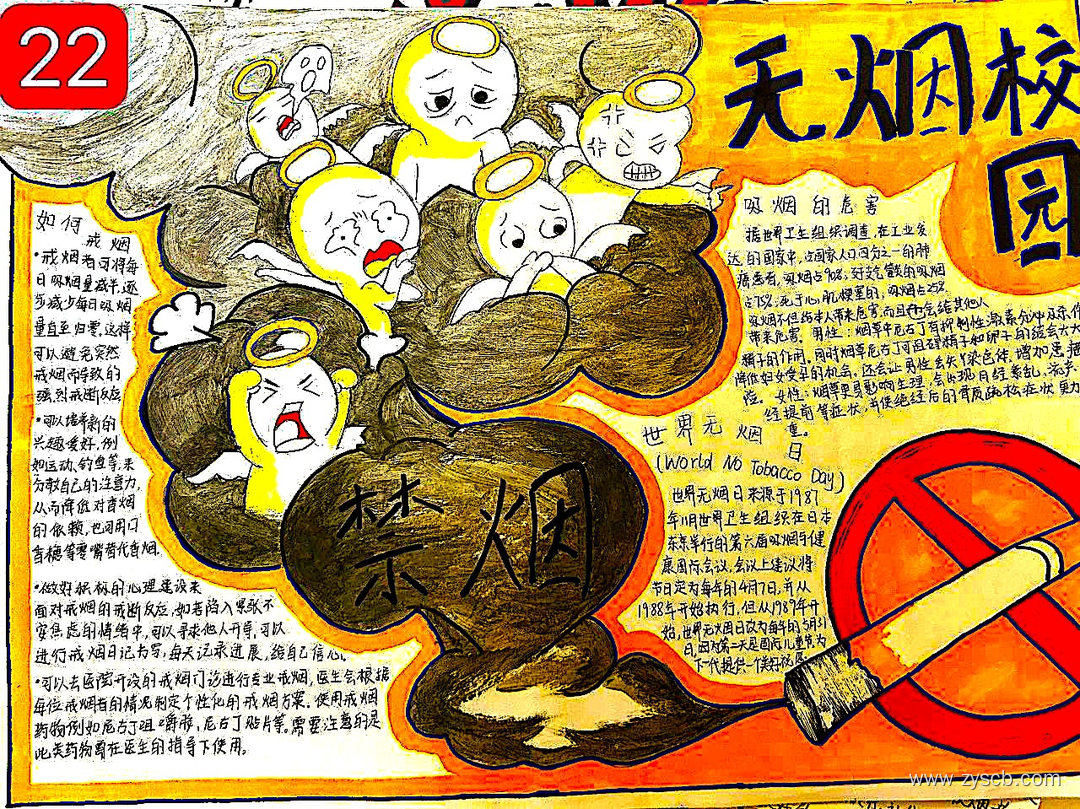 22
无烟校
园
如何
戒烟
•戒烟者可将每
日吸烟量减半,逐
步减少每日吸烟
量直至归零,这样
可以避免突然
戒烟而导致的
强烈戒断反应
•可以培养新的
兴趣爱好,例
如运动、钓鱼等,来
分散自己的注意力,
从而降低对香烟
的依赖,也可用口
香糖等零嘴替代香烟.
•做好积极的心理建设来
面对戒烟的戒断反应,如若陷入紧张不
安焦虑的情绪中,可以寻求他人开导,可以
进行戒烟日记书写,每天记录进展,给自己信心。
•可以去医院开设的戒烟门诊进行专业戒烟,医生会根据
每位戒烟者的情况制定个性化的戒烟方案。使用戒烟
药物例如尼古丁咀嚼胶,尼古丁贴片等。需要注意的是
此类药物需在医生的指导下使用。
禁烟
吸烟的危害
据世界卫生组织调查,在工业发
达的国家中,
癌患者,吸烟占90%,死于支气管的吸烟
占75%,死于心肌梗塞的,吸烟占25%.
吸烟不但给本人带来危害,而且还会给其他人
带来危害。男性:烟草中尼古丁有抑制性激素分泌及杀伤
精子的作用,同时烟草尼古丁可阻碍精子和卵子的结合大大
降低妇女受孕的机会,还会让男性丢失Y染色体,增加患癌
险。女性:烟草更易影响生理,会出现月经紊乱、流产、
经提前等症状,并使绝经后的骨质疏松症状更为
重。
世界无烟
日
(World No Tobacco Day)
世界无烟日来源于1987
年11月世界卫生组织在日本
东京举行的第六届吸烟与健
康国际会议,会议上建议将
节日定为每年的4月7日,并从
1988年开始执行,但从1989年开
始,世界无烟日改为每年的5月31
日,因为第二天是国际儿童节为
下一代提供一个美好
www.zyscb.com